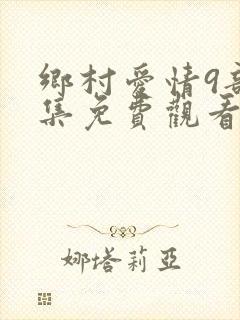 鄉村愛情9部
集免費觀看
娜塔莉亞